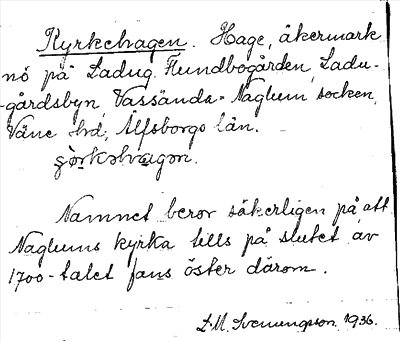 Kyrkehagen. Hage, åkermark
nö på Ladug. Hundbogården, Ladu-
-gårdsbyn, Vassända-Naglum socken,
Väne hd, Älfsborgs län.
Namnet beror säkerligen på att
Naglums kyrka tills på slutet av
1700-talet fans öster därom.
D.M. Svenungsson. 1936.